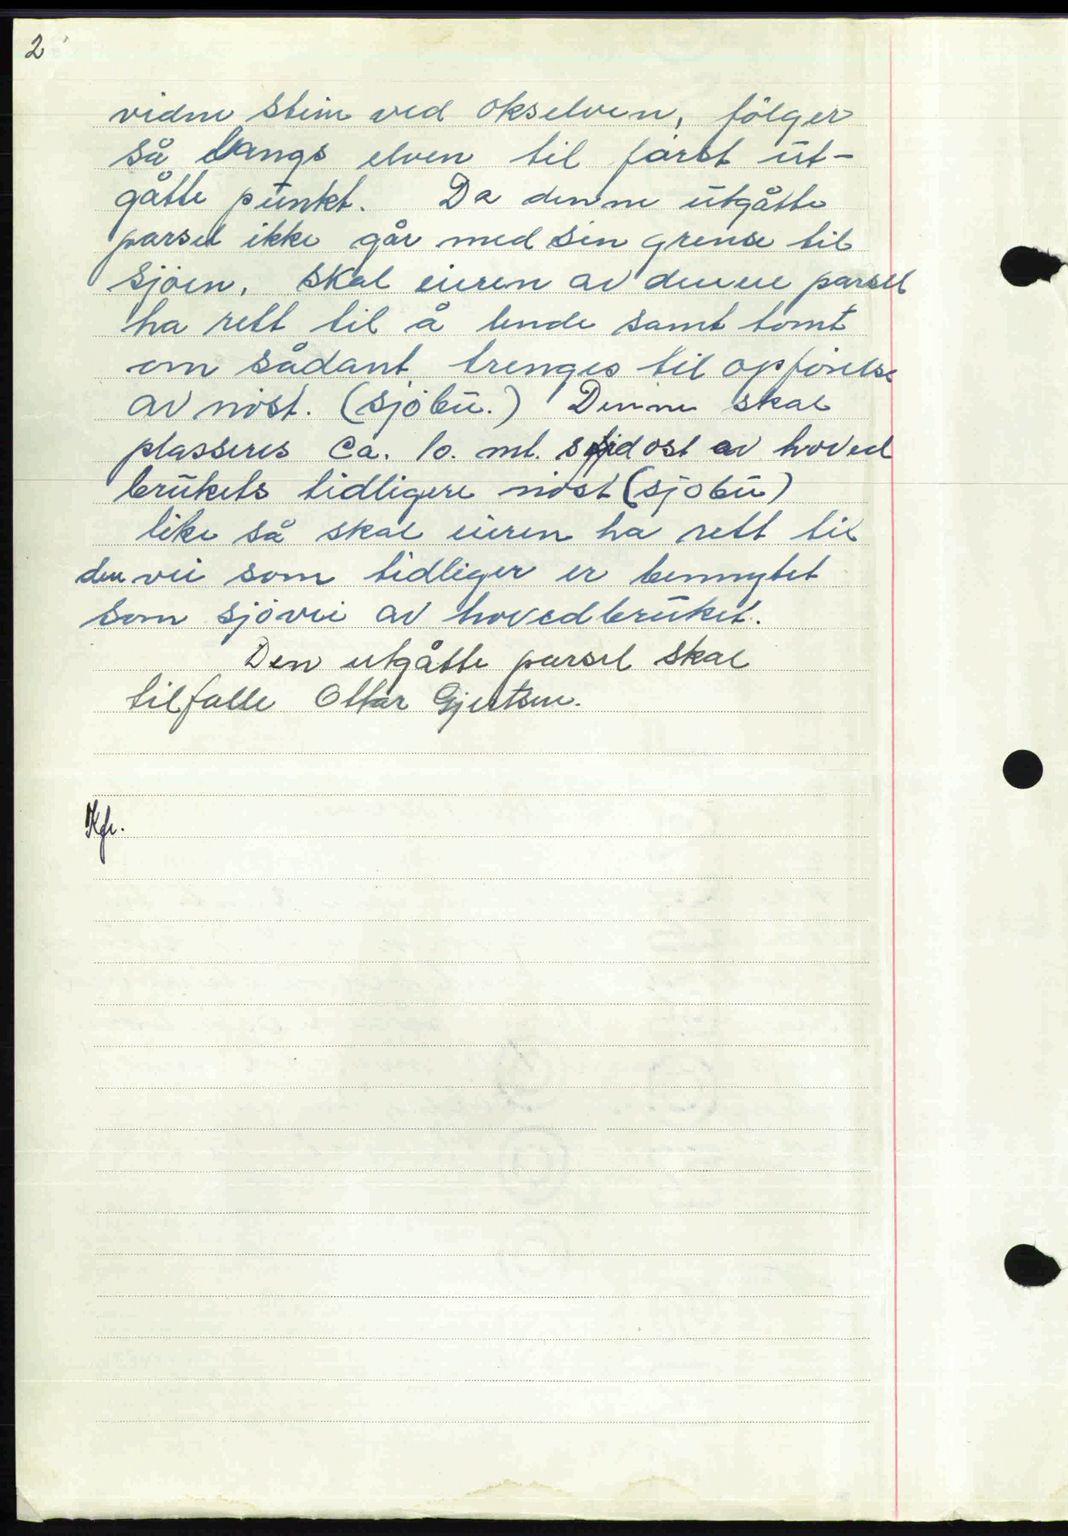 2
vidne stein ved okselven, følger
så langs elven til først ut-
gåtte punkt. Da denne utgåtte
parsel ikke går med sin grense til
sjøen, skal eieren av denne parsel
ha rett til å lende samt tomt
om sådant trenges til opførelse
av nøst. (sjøbu.) Denne skal
plasseres Ca. 10. mt. sydost av hoved
brukets tidligere nøst (sjøbu)
like så skal eieren ha rett til
den vei som tidliger er bennytet
som sjøvei av hovedbruket.
Den utgåtte parsel skal
tilfalle Ottar Gjertsen.
Kfr.